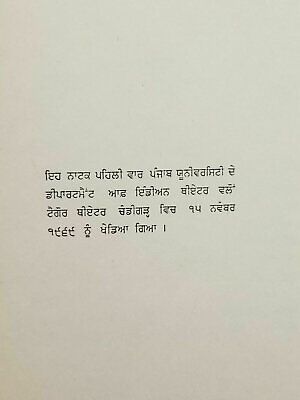 ਇਹ ਨਾਟਕ ਪਹਿਲੀ ਵਾਰ ਪੰਜਾਬ ਯੂਨੀਵਰਸਿਟੀ ਦੇ
ਡੀਪਾਰਟਮੈਂਟ ਆਫ਼ ਇੰਡੀਅਨ ਥੀਏਟਰ ਵਲੋਂ
ਟੈਗੋਰ ਥੀਏਟਰ ਚੰਡੀਗੜ੍ਹ ਵਿਚ ੧੫ ਨਵੰਬਰ
੧੯੬੯ ਨੂੰ ਖੇਡਿਆ ਗਿਆ ।